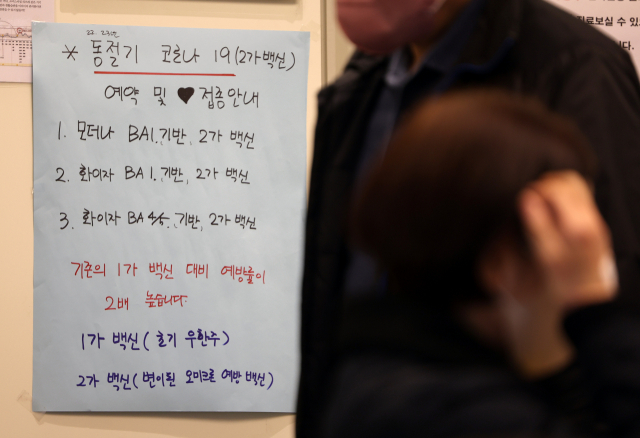 22. 23년
* 동절기 코로나 19 (2가백신)
예약 및 ♥ 접종안내
1. 모더나 BA1. 기반, 2가 백신
2. 화이자 BA 1. 기반, 2가 백신
3. 화이자 BA 4/5. 기반, 2가 백신
기존의 1가 백신 대비 예방률이
2배 높습니다.
1가 백신 ( 초기 우한주 )
2가 백신 ( 변이된 오미크론 예방 백신 )
료보실 수 있